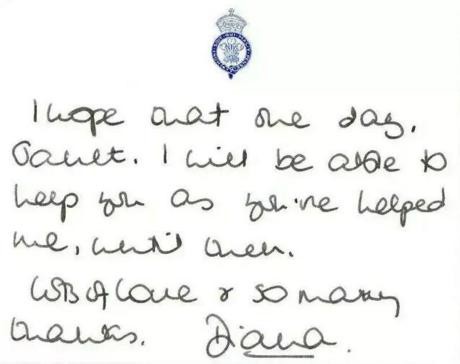 I hope that one day,
I will be able to
help you as you've helped
me, until then.
Lots of love & so many
thanks. Diana.